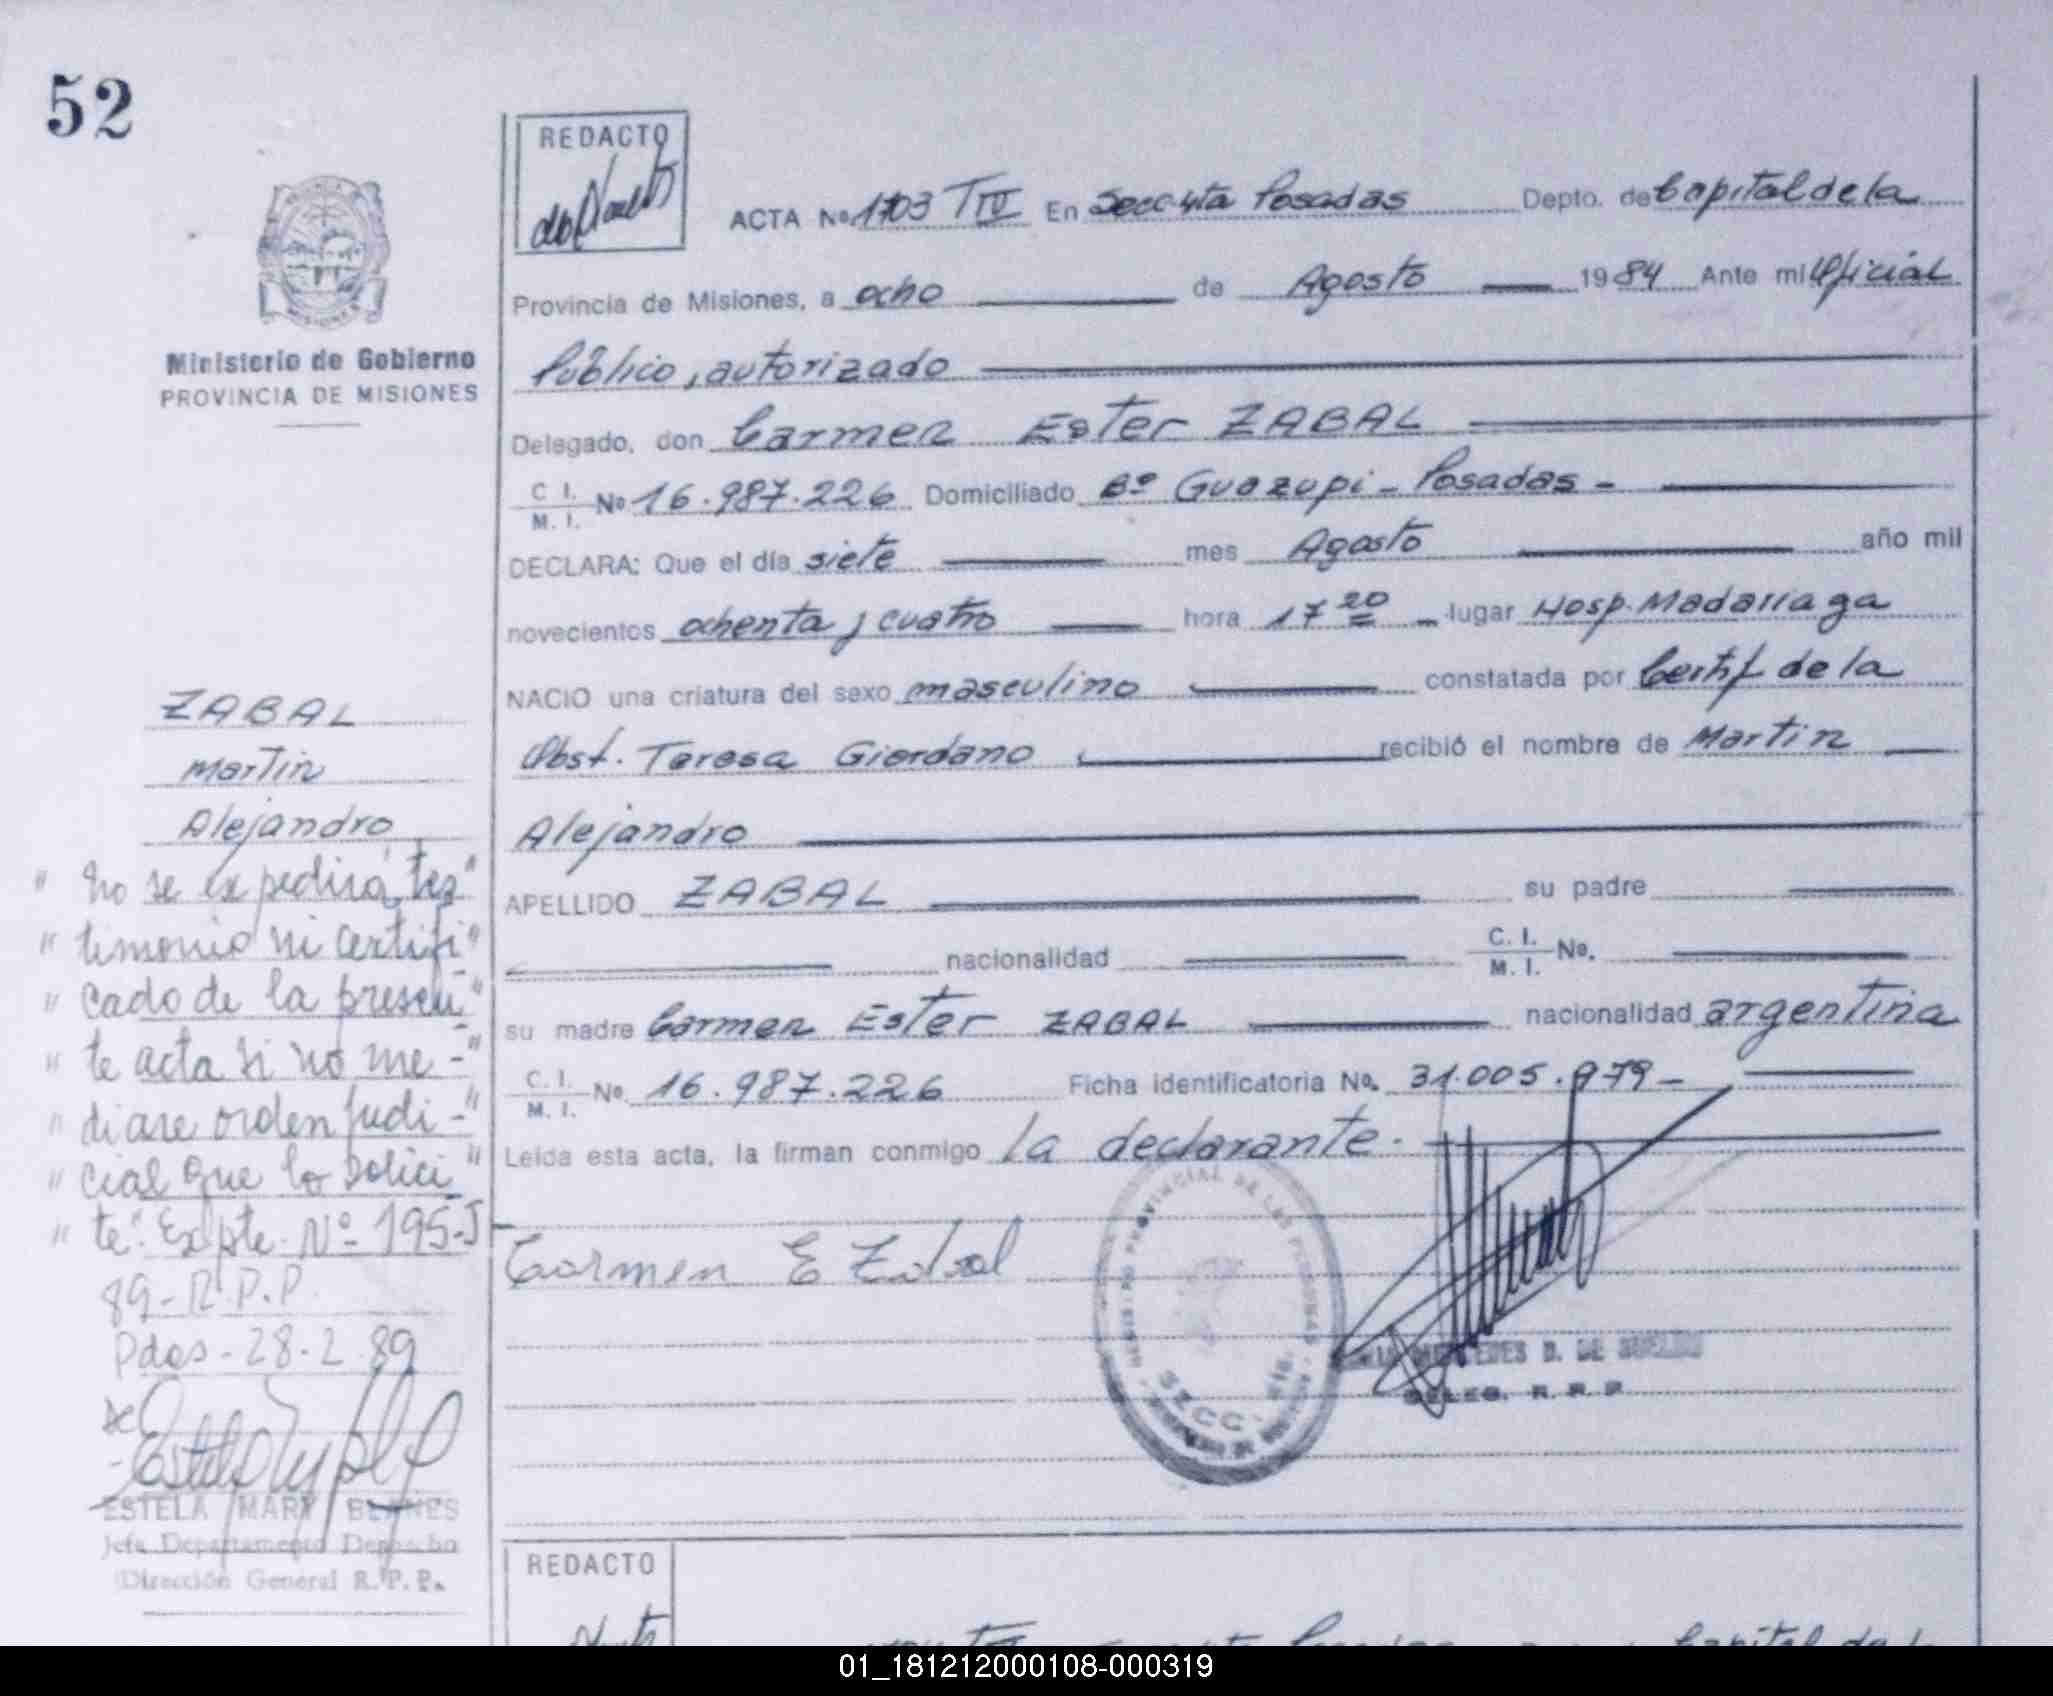 52
REDACTO
ACTA No 1703 TIV En Secc 4ta Posadas Depto. de Capital de la
Provincia de Misiones, a ocho de Agosto 1984 Ante mi Oficial
Ministerio de Gobierno
PROVINCIA DE MISIONES
Público, autorizado
Delegado, don Carmen Ester ZABAL
C. I. M. I. No 16.987.226 Domiciliado Bº Guazupi - Posadas -
DECLARA: Que el día siete mes Agosto año mil
novecientos ochenta y cuatro hora 17 20 lugar Hosp. Madariaga
NACIO una criatura del sexo masculino constatada por Certif de la
Obst. Teresa Giordano recibió el nombre de Martin
Alejandro
APELLIDO ZABAL su padre
nacionalidad C. I. M. I. No.
su madre Carmen Ester ZABAL nacionalidad argentina
C. I. M. I. No. 16.987.226 Ficha identificatoria No. 31.005.979 -
Leída esta acta, la firman conmigo la declarante.
Carmen E Zabal
ZABAL
Martin
Alejandro
" No se expedirá tes"
" timonio ni certifi"
" cado de la presen-"
" te acta si no me-"
" diare orden judi-"
" cial que lo solici-"
" te". Expte. Nº 195-J
89-R.P.P.
Pdas - 28.2.89
ESTELA MARY BLANES
Jefa Departamento Despacho
Dirección General R.P.P.
DELEG. R. P. P.
REDACTO
01_181212000108-000319